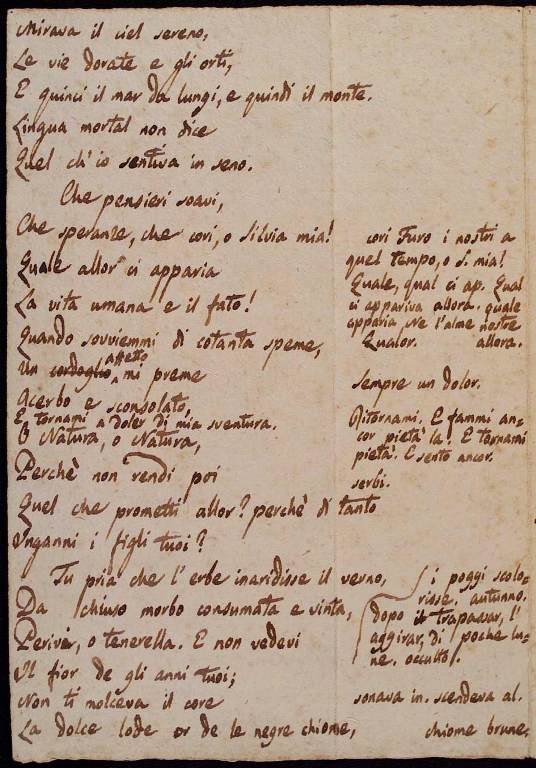 Mirava il ciel sereno,
Le vie dorate e gli orti,
E quinci il mar da lungi, e quindi il monte.
Lingua mortal non dice
Quel ch' io sentiva in seno.
Che pensieri soavi,
Che speranze, che cori, o Silvia mia!
Quale allor ci apparia
La vita umana e il fato!
Quando sovviemmi di cotanta speme,
Un cordoglio affetto mi preme
Acerbo e sconsolato,
E tornami a doler di mia sventura.
O Natura, o Natura,
Perchè non rendi poi
Quel che prometti allor? perchè di tanto
Inganni i figli tuoi?
Tu pria che l' erbe inaridisse il verno,
Da chiuso morbo consumata e vinta,
Perivi, o tenerella. E non vedevi
Il fior de gli anni tuoi;
Non ti molceva il core
La dolce lode or de le negre chiome,
cori Furo i nostri a
quel tempo, o S. mia!
Quale, qual ci ap. Qual
ci appariva allora. quale
apparia, Ne l'alme nostre
Qualor. allora.
sempre un dolor.
Ritornami. E fammi an-
cor pietà la. E tornami
pietà. E sento ancor.
serbi.
i poggi scolo-
risse. autunno.
dopo il trapassar, l'
aggirar, di poche lu-
ne. occulto.
sonava in. scendeva al.
chiome brune,